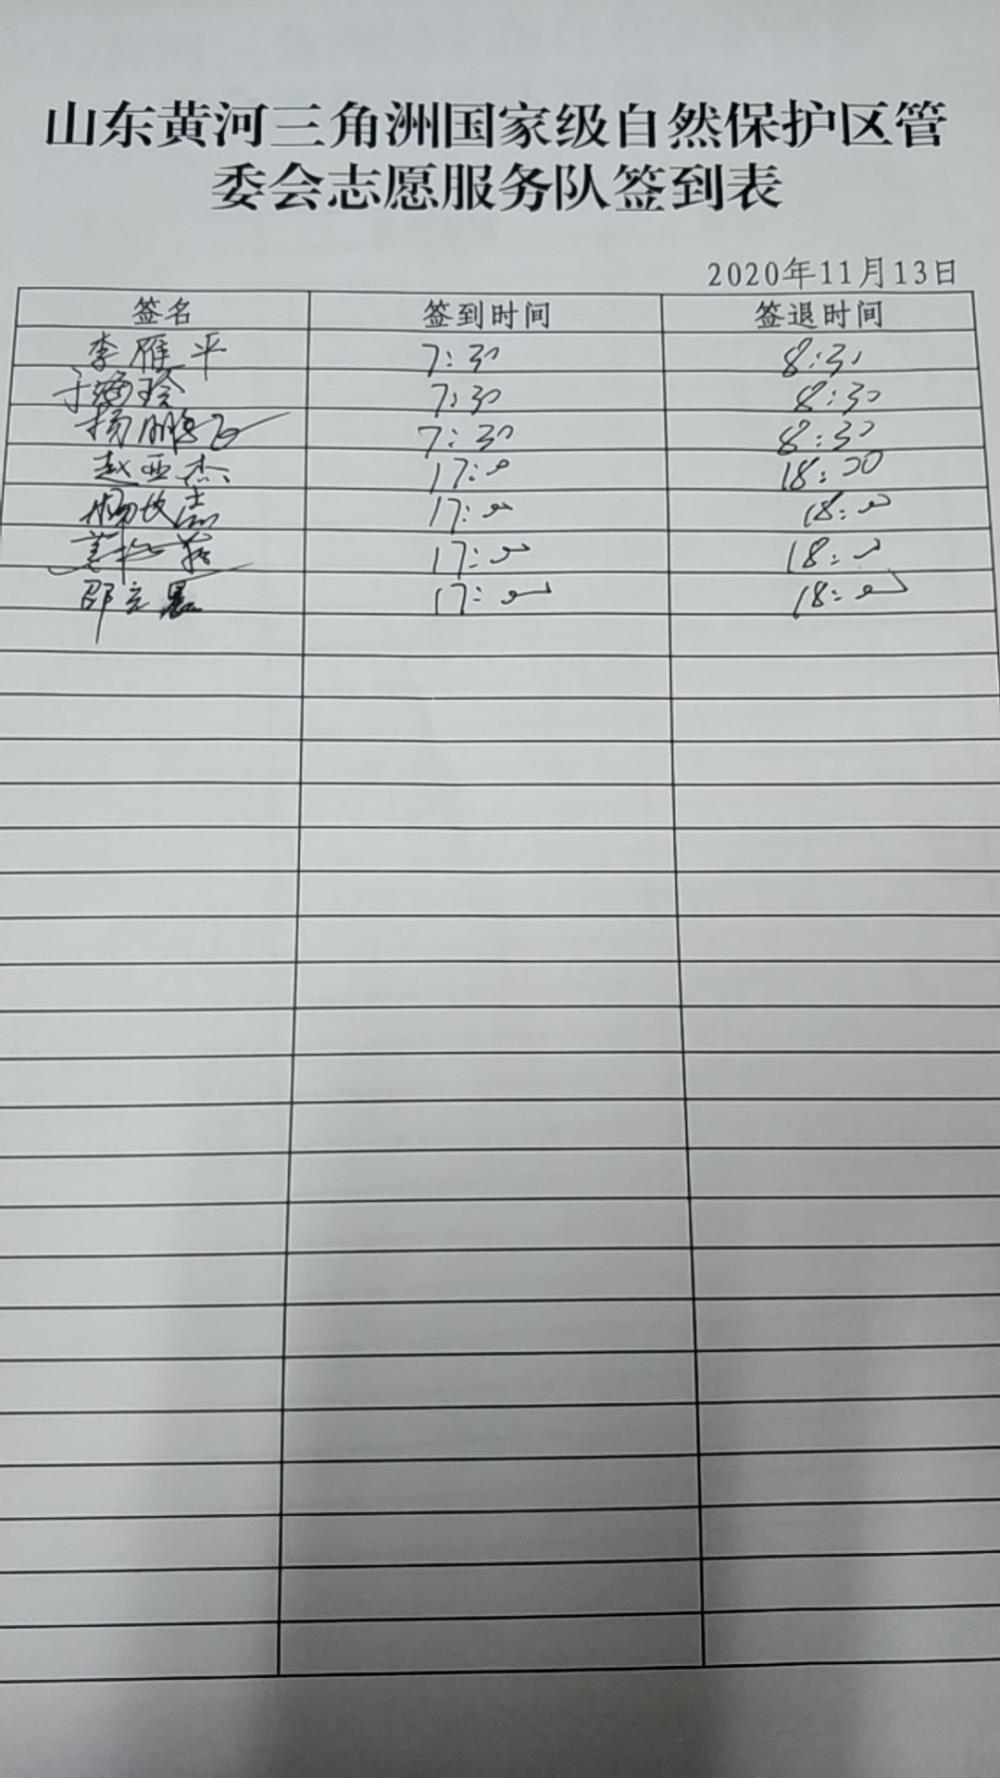 山东黄河三角洲国家级自然保护区管
委会志愿服务队签到表
2020年11月13日
签名 签到时间 签退时间
李雁平 7:30 8:30
于 玲 7:30 8:30
杨鹏飞 7:30 8:30
赵亚杰 17:00 18:00
杨 17:00 18:00
姜 17:00 18:00
邵立晨 17:00 18:00